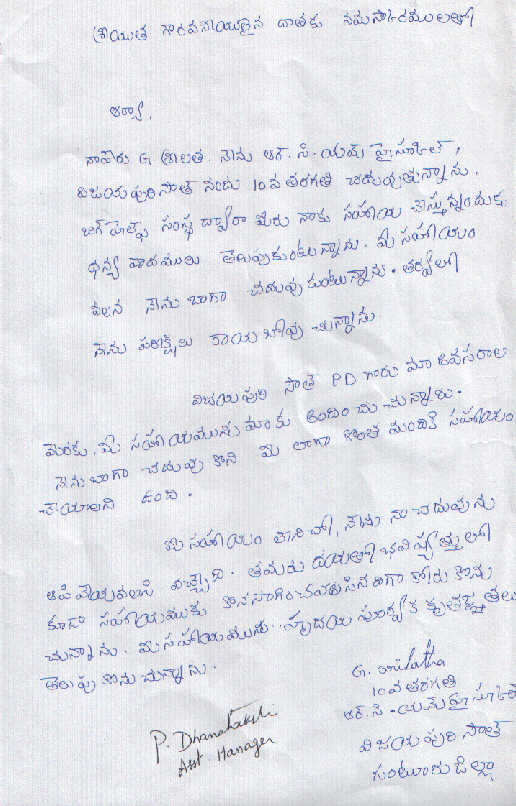 శ్రీయుత గౌరవనీయులైన దాతకు నమస్కారములతో
ఆర్యా,
నాపేరు G శ్రీలత. నేను ఆర్. సి. యమ్ హైస్కూల్,
విజయపురి సౌత్ నందు 10వ తరగతి చదువుతున్నాను.
బిగ్ హెల్ప్ సంస్థ ద్వారా మీరు నాకు సహాయం చేస్తున్నందుకు
ధన్య వాదములు తెలుపుకుంటున్నాను. మీ సహాయం
వలన నేను బాగా చదువు కుంటున్నాను. త్వరలో
నేను పరీక్షలు రాయ బోవు చున్నాను
విజయపురి సౌత్ PD గారు మా అవసరాల
మేరకు, మీ సహాయమును మాకు అందించు చున్నారు.
నేను బాగా చదువు కొని మీ లాగా కొంత మందికి సహాయం
చేయాలని ఉంది.
మీ సహాయం లేనిచో, నేను నా చదువును
ఆపి వేయవలసి వచ్చేది. తమరు దయతో భవిష్యత్తులో
కూడా సహాయమును కొనసాగించవలసినదిగా కోరు కొను
చున్నాను. మీ సహాయమునకు హృదయ పూర్వక కృతజ్ఞతలు
తెలుపు కొను చున్నాను.
G. Srilatha
10వ తరగతి
ఆర్. సి. యమ్ హై స్కూల్
విజయపురి సౌత్
గుంటూరు జిల్లా
P.
Asst. Manager